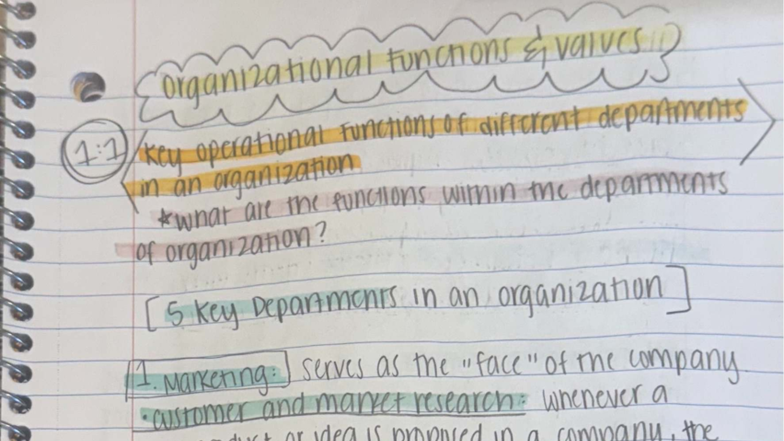 organizational functions & values
1:1 Key operational functions of different departments
in an organization
*what are the functions within the departments
of organization?
[5 Key Departments in an organization]
1. Marketing: serves as the "face" of the company.
• customer and market research: whenever a
or idea is proposed in a company, the